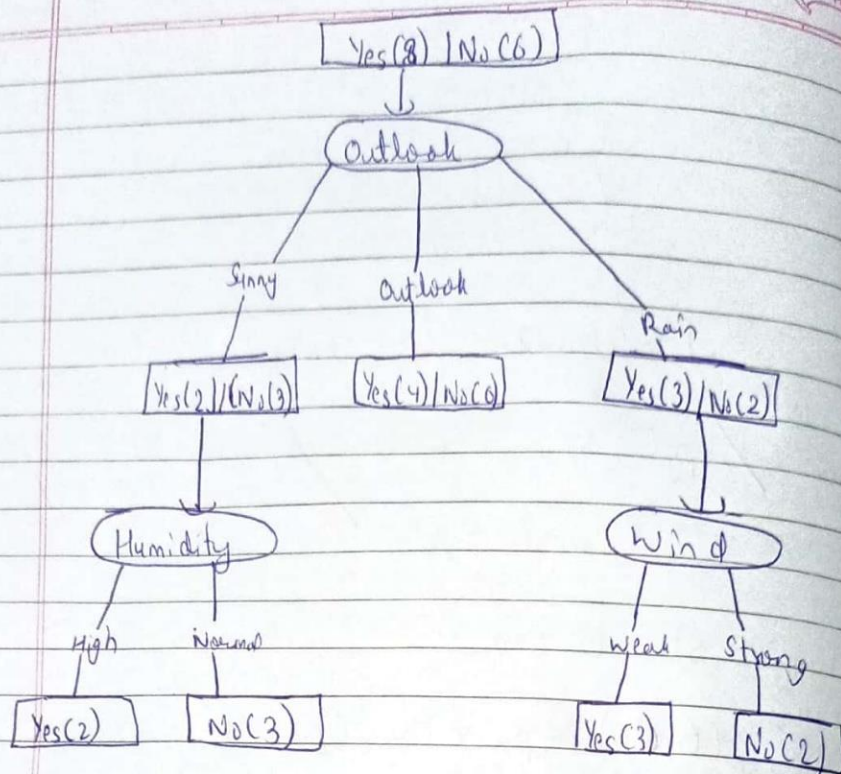 Yes(8) | No(6)
Outlook
Sunny
Outlook
Rain
Yes(2) | (No(3)
Yes(4) | No(0)
Yes(3) | No(2)
Humidity
Wind
High
Normal
Weak
Strong
Yes(2)
No(3)
Yes(3)
No(2)